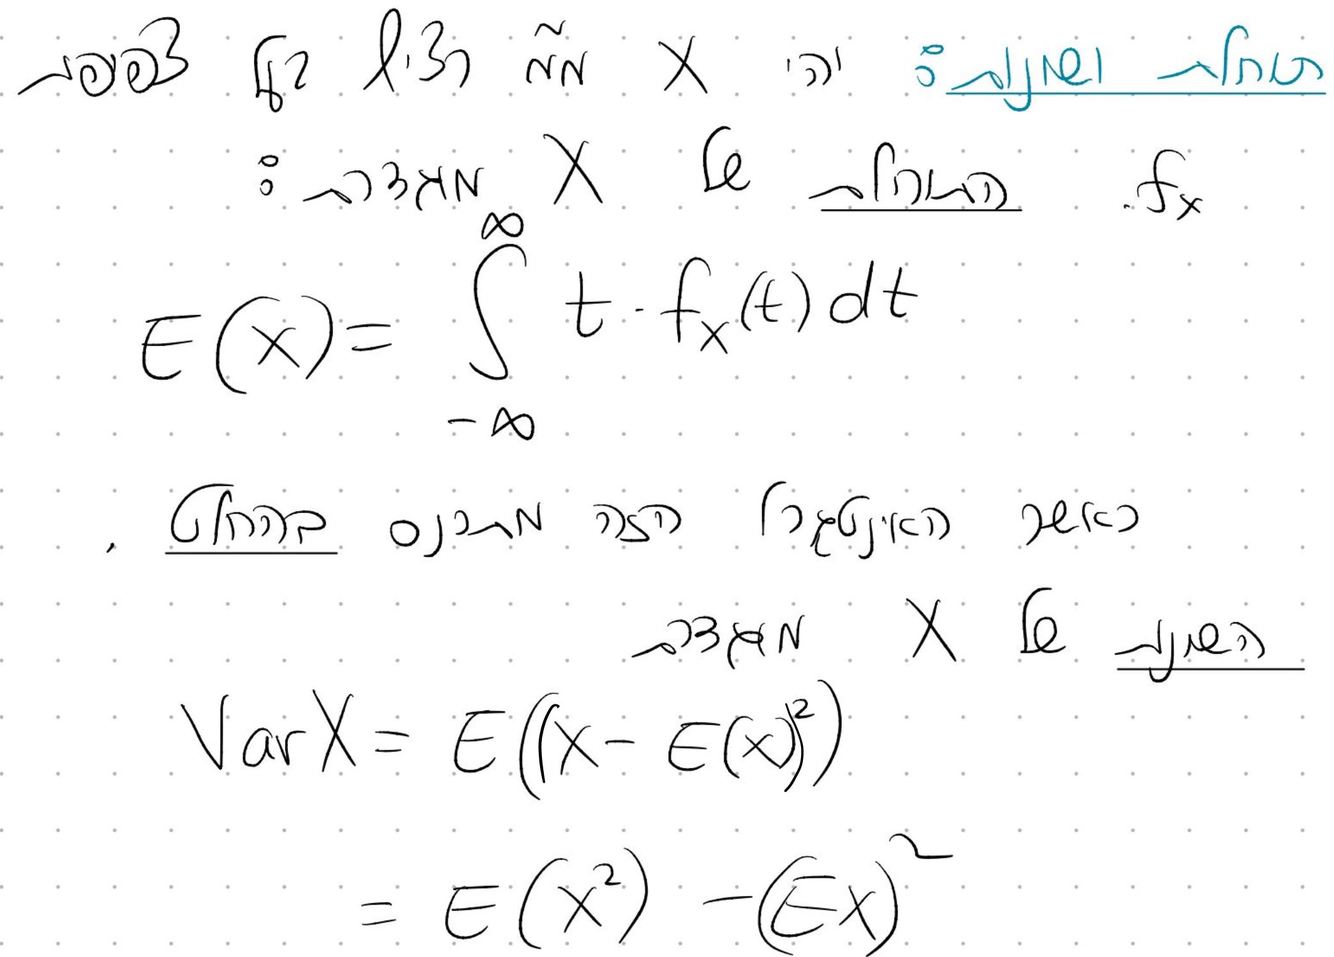 תוחלת ושונות: יהי X מ״מ רציף בעל צפיפות
f_X. התוחלת של X מוגדרת:
E(X) = ∫_{-∞}^{∞} t · f_X(t) dt
כאשר האינטגרל הזה מתכנס בהחלט.
השונות של X מוגדרת
Var X = E((X - E(X))²)
= E(X²) - (EX)²